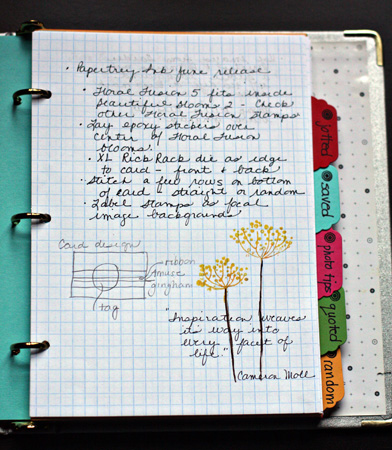 · Papertrey Ink June release
· Floral Fusion 5 fits inside
Beautiful Blooms 2 - Check
other Floral Fusion Stamps
· Lay epoxy stickers over
center of Floral Fusion
blooms.
· XL Rick Rack die as edge
to card - front & back
· Stitch a few rows on bottom
of card - straight or random
· Label stamps as focal
image backgrounds
Card design
ribbon
amuse
gingham
tag
"Inspiration weaves
its way into
every facet of
life."
Cameron Moll
jotted
saved
photo tips
quoted
random